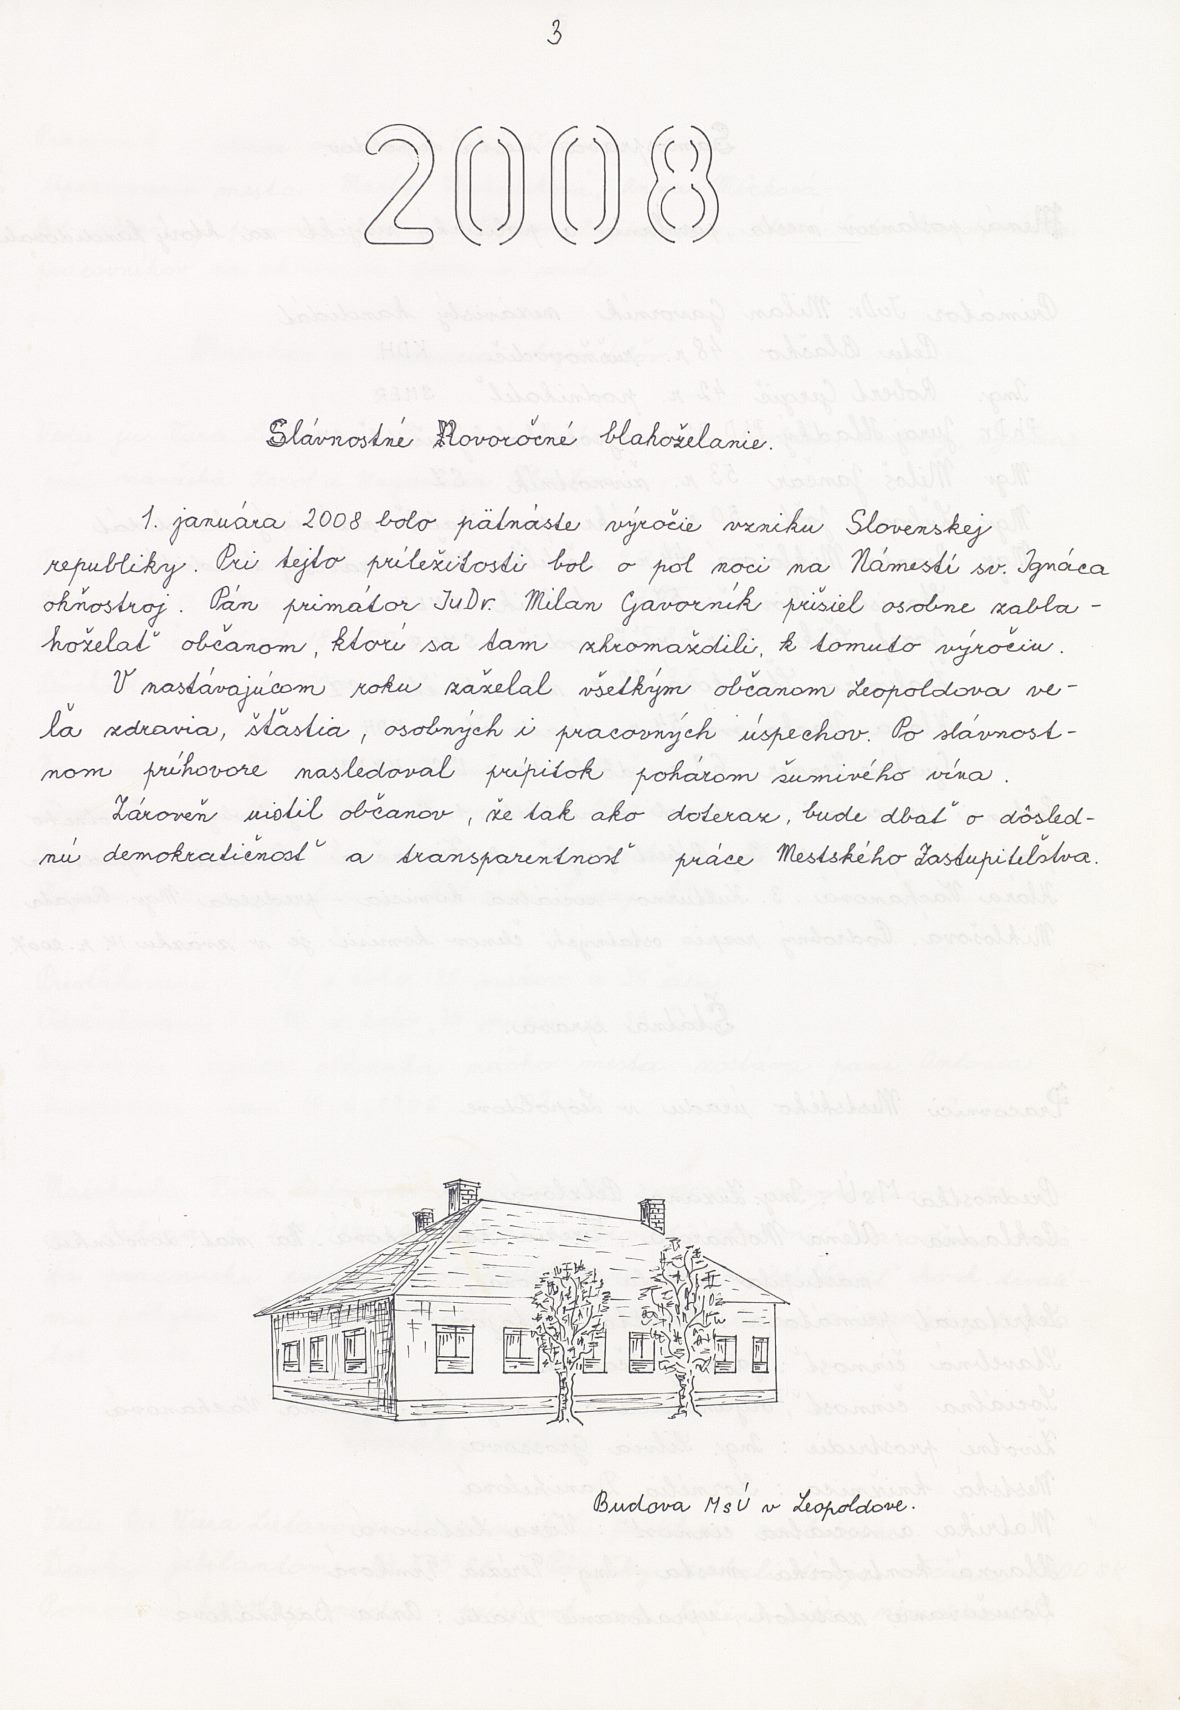 3
2008
Slávnostné Novoročné blahoželanie.
1. januára 2008 bolo pätnáste výročie vzniku Slovenskej
republiky. Pri tejto príležitosti bol o pol noci na Námestí sv. Ignáca
ohňostroj. Pán primátor JuDr. Milan Gavorník prišiel osobne zabla-
hoželať občanom, ktorí sa tam zhromaždili, k tomuto výročiu.
V nastávajúcom roku zaželal všetkým občanom Leopoldova ve-
ľa zdravia, šťastia, osobných i pracovných úspechov. Po slávnost-
nom príhovore nasledoval prípitok pohárom šumivého vína.
Zároveň uistil občanov, že tak ako doteraz, bude dbať o dôsled-
nú demokratičnosť a transparentnosť práce Mestského Zastupiteľstva.
Budova MsÚ v Leopoldove.